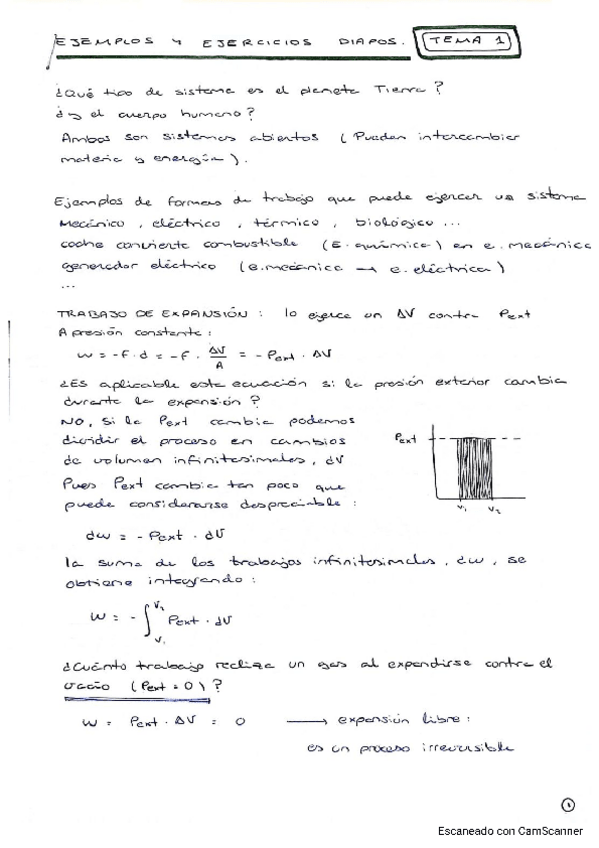 EJEMPLOS Y EJERCICIOS DIAPOS. TEMA 1
¿Qué tipo de sistema es el planeta Tierra?
¿y el cuerpo humano?
Ambos son sistemas abiertos (Pueden intercambiar
materia y energía).
Ejemplos de formas de trabajo que puede ejercer un sistema
Mecánico, eléctrico, térmico, biológico...
coche convierte combustible (E. química) en e. mecánica
generador eléctrico (e. mecánica → e. eléctrica)
...
TRABAJO DE EXPANSIÓN: lo ejerce un ΔV contra Pext
A presión constante:
W = -F·d = -F · ΔV/A = - Pext · ΔV
¿Es aplicable esta ecuación si la presión exterior cambia
durante la expansión?
NO, si la Pext cambia podemos
dividir el proceso en cambios
de volumen infinitesimales, dV
Pues Pext cambia tan poco que
puede considerarse despreciable:
Pext
V₁ V₂
dw = - Pext · dV
la suma de los trabajos infinitesimales, dw, se
obtiene integrando:
W = - ∫ V₁ V₂ Pext · dV
¿Cuánto trabajo realiza un gas al expandirse contra el
vacío (Pext = 0)?
W = Pext · ΔV = 0 → expansión libre:
es un proceso irreversible
1
Escaneado con CamScanner